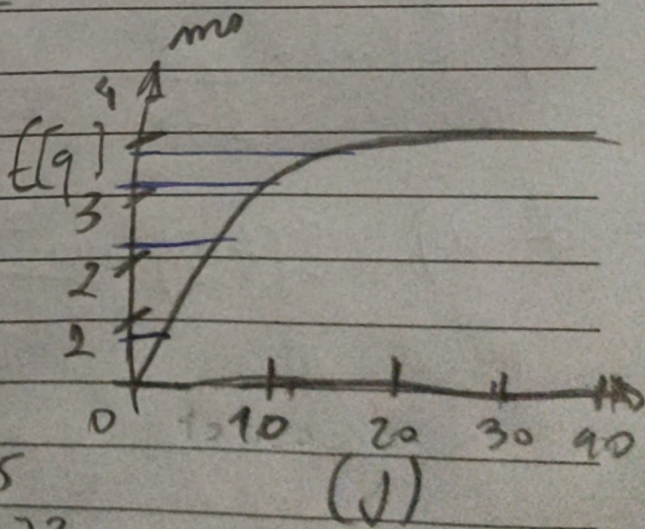 4
E[q]
3
2
2
0 10 20 30 40
(J)